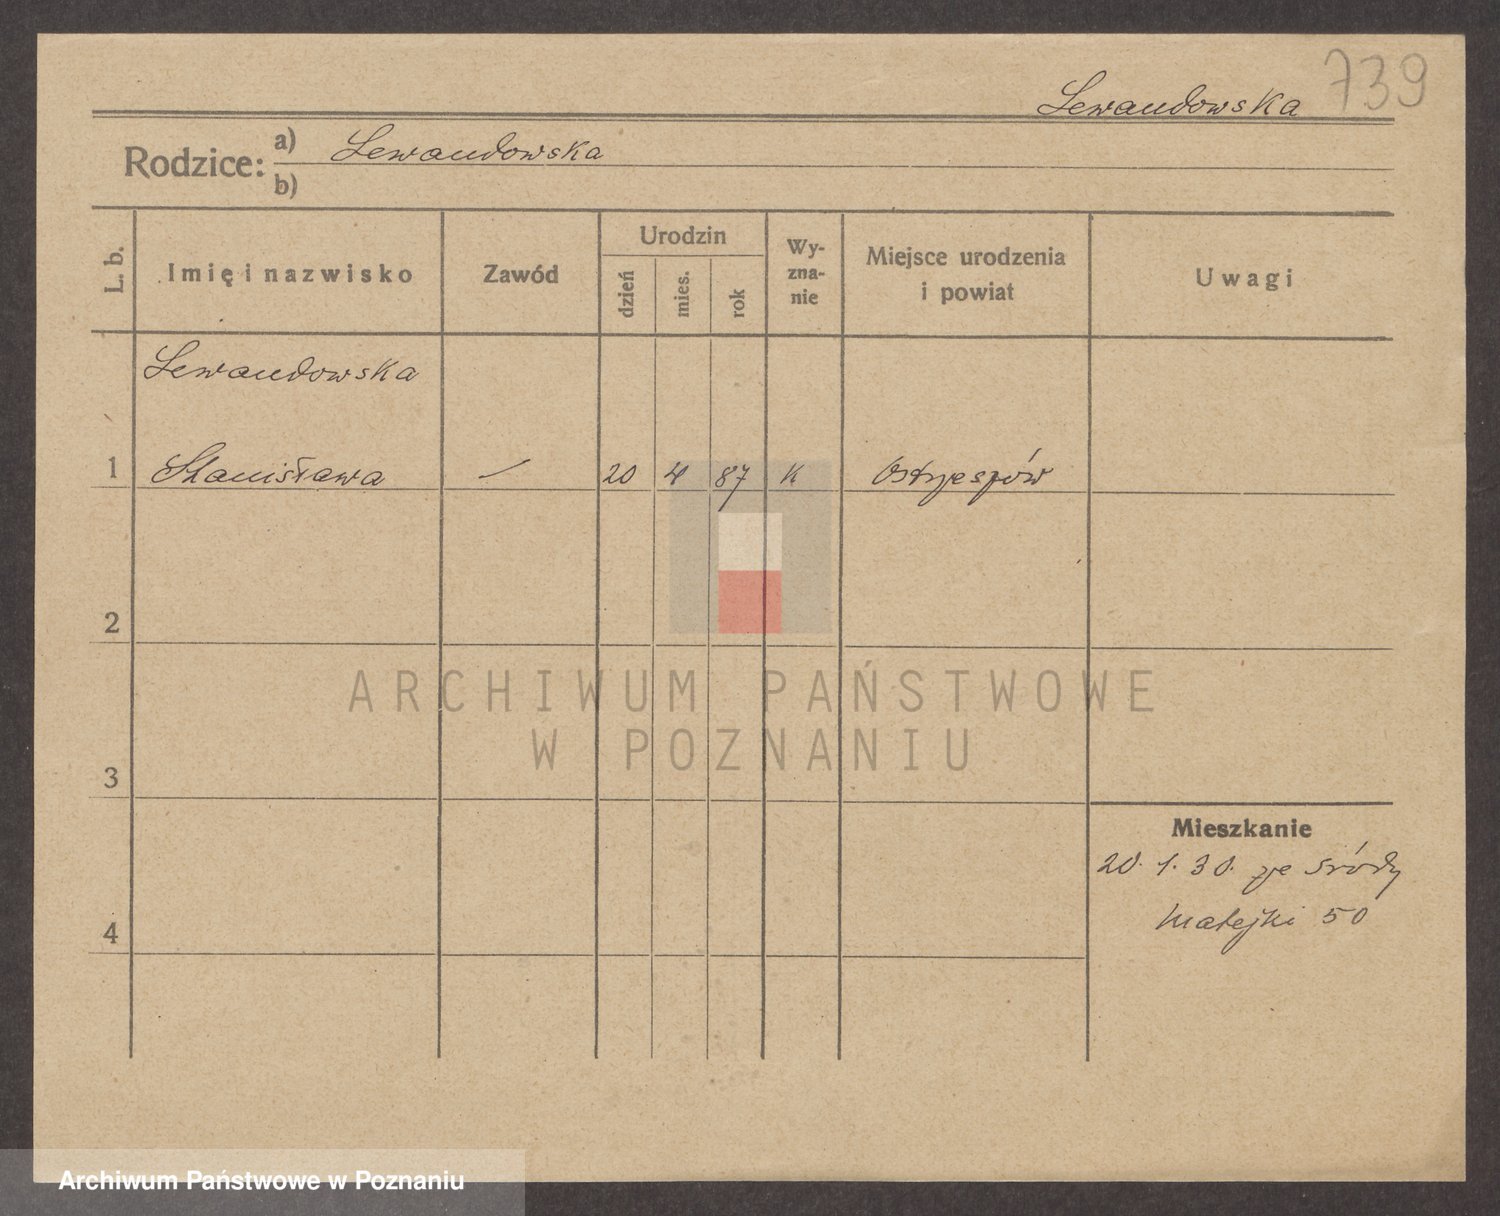 Lewandowska 739
Rodzice: a) Lewandowska
b)
L. b. Imię i nazwisko Zawód Urodzin dzień mies. rok Wyzna-nie Miejsce urodzenia i powiat Uwagi
Lewandowska
1 Stanisława — 20 4 87 K Ostrzeszów
2
ARCHIWUM PAŃSTWOWE
W POZNANIU
3
Mieszkanie
20. 1. 30. ze Środy
Matejki 50
4
Archiwum Państwowe w Poznaniu